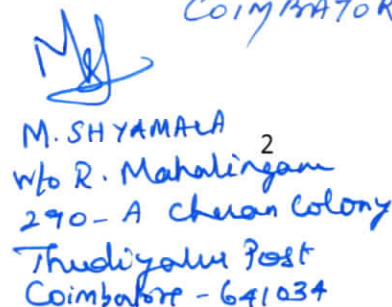 COIMBATOR
M. SHYAMALA
2
W/o R. Mahalingam
290-A Cheran Colony
Thudiyalur Post
Coimbatore - 641034